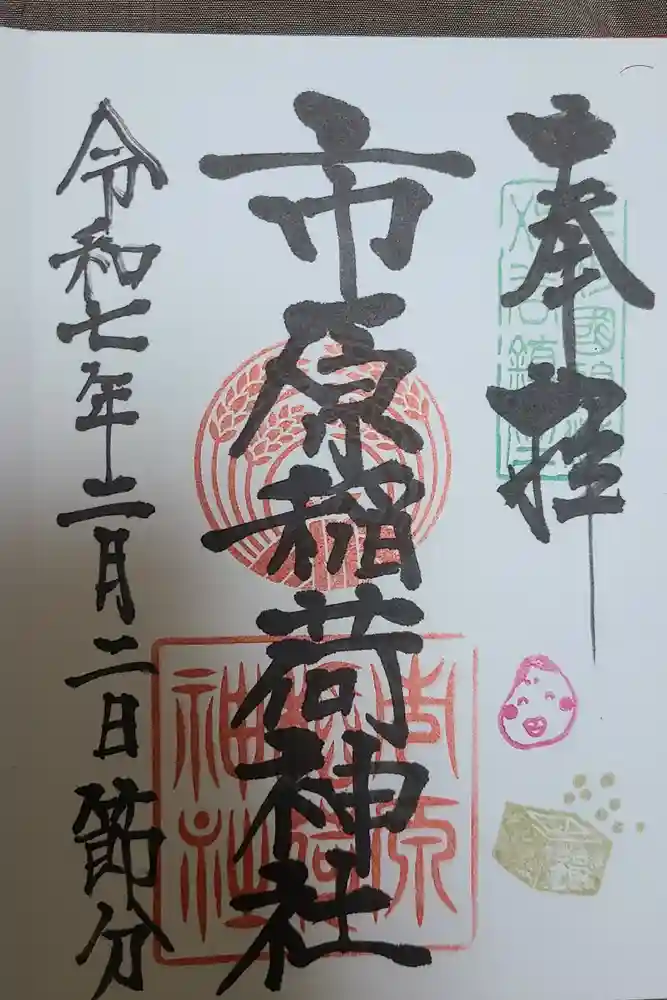 奉拝
市原稲荷神社
令和七年二月二日節分
市原稲荷神社